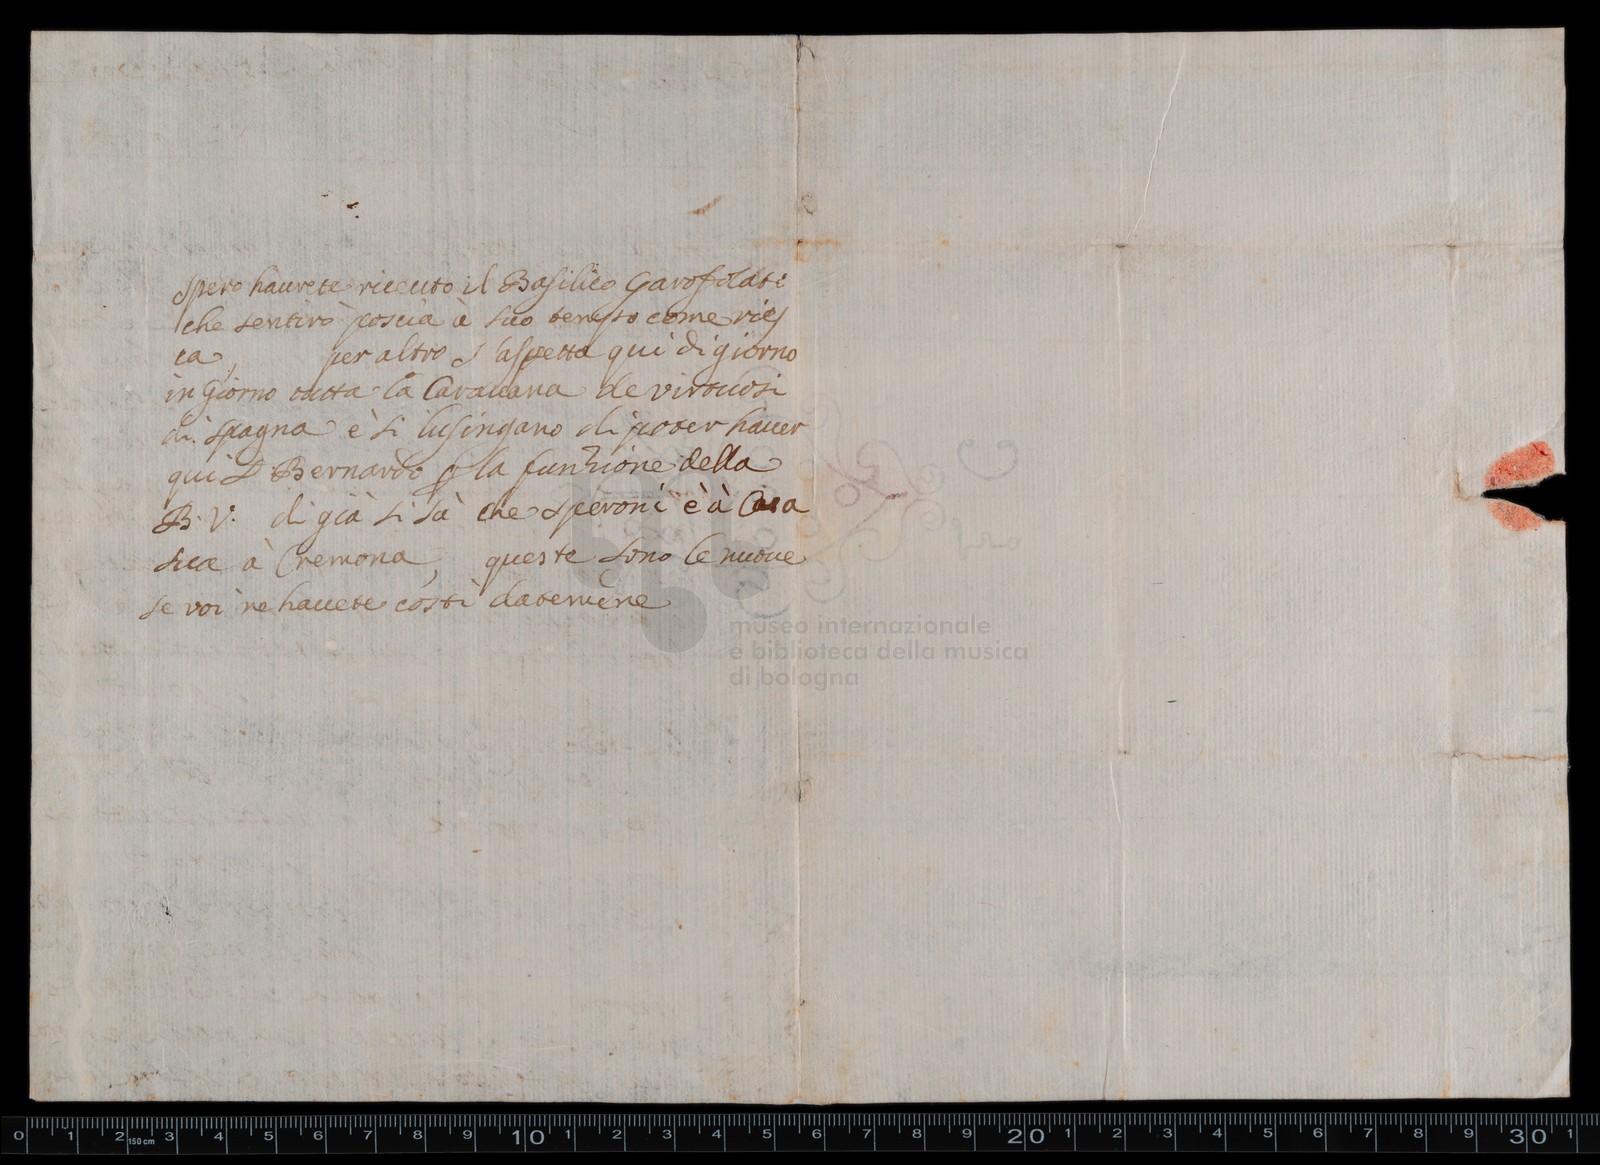 Spero haurete riceuto il Basilico Garofolati
che sentirò poscia à suo tempo come ries
ca, per altro s'aspetta qui di giorno
in Giorno tutta la Carauana de virtuosi
di Spagna è si lusingano di poter hauer
qui D Bernardo p la funzione della
B. V. di già si sà che Speroni è à Casa
sua à Cremona, queste sono le nuoue
se voi ne hauete costi datemene
museo internazionale
e biblioteca della musica
di bologna
0 1 2 150 cm 3 4 5 6 7 8 9 10 1 2 3 4 5 6 7 8 9 20 1 2 3 4 5 6 7 8 9 30 1